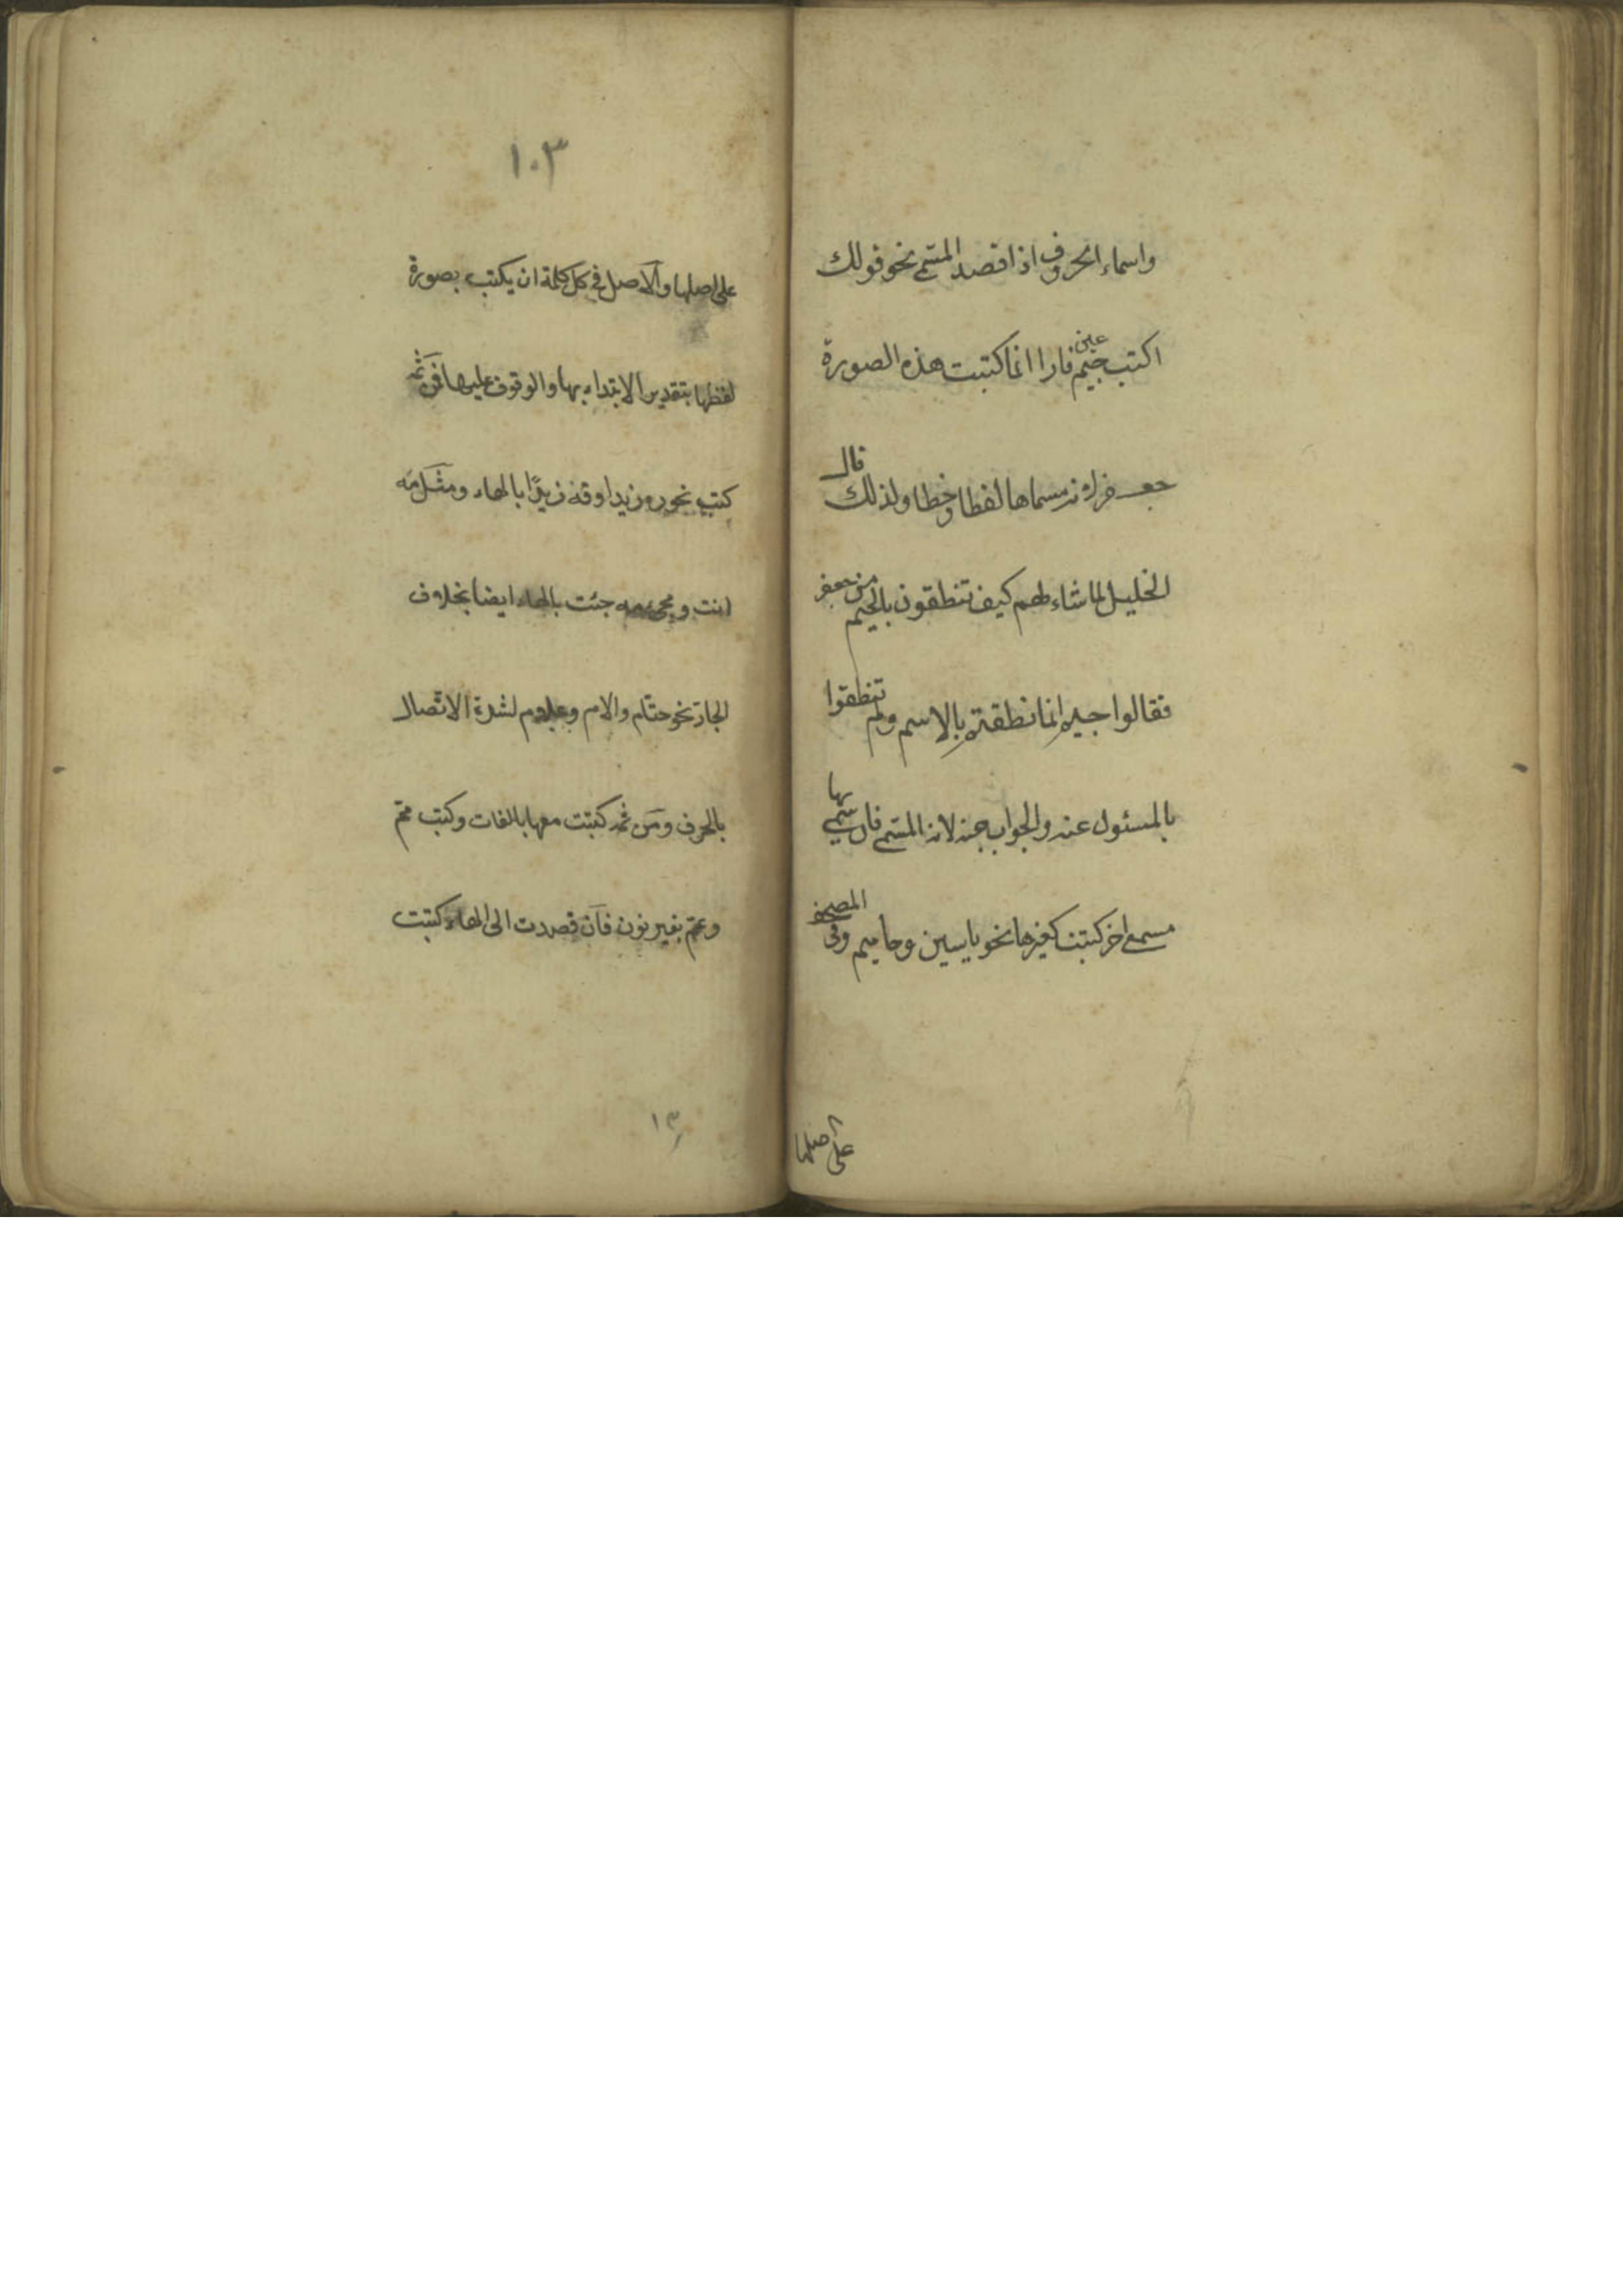 واسماء الحروف اذا قصد المسمى نحو قولك
اكتب جيم عين فا را انما كتبت هذه الصورة
جعفر لانه مسماها لفظا وخطا ولذلك قال
الخليل لما شاء لهم كيف تنطقون بالجيم من جعفر
فقالوا جيم انما نطقتم بالاسم ولم تنطقوا
بالمسئول عنه والجواب جه لانه المسمى فان سمى بها
مسمى اخر كتبت كغيرها نحو ياسين وحاميم وفى المصحف
على اصلها
١٠٣
على اصلها والاصل فى كل كلمة ان يكتب بصورة
لفظها بتقدير الابتداء بها والوقوف عليها فمن ثمه
كتب نحو ره زيدا وقه زيدًا بالهاء ومثل مه
انت ومجىء مه جئت بالهاء ايضا بخلاف
الجارة نحو حتام والام وعلام لشدة الاتصال
بالحرف ومن ثمه كتبت معها بالفات وكتب مم
وعم بغير نون فان قصدت الى الهاء كتبت
١٣